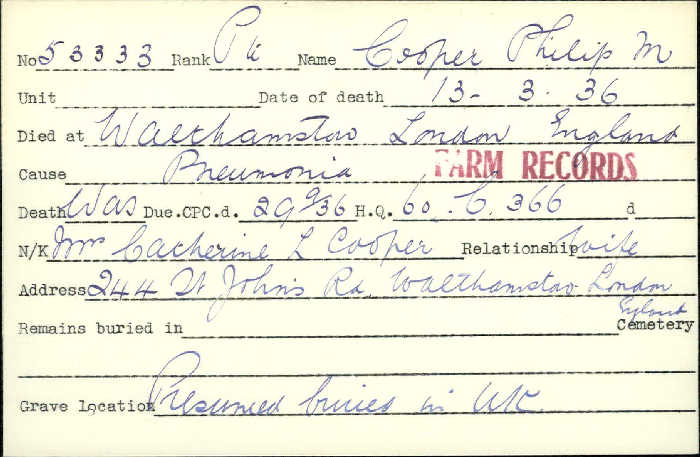 No 53333 Rank Pte Name Cooper Philip M
Unit Date of death 13 - 3. 36
Died at Walthamstow London England
Cause Pneumonia FARM RECORDS
Death Was Due.CPC.d. 29 9/36 H.Q. 60. C. 366 d
N/K Mrs Catherine L Cooper Relationship wife
Address 244 St John's Rd, Walthamstow London
England
Remains buried in Cemetery
Grave location Presumed buried in UK.